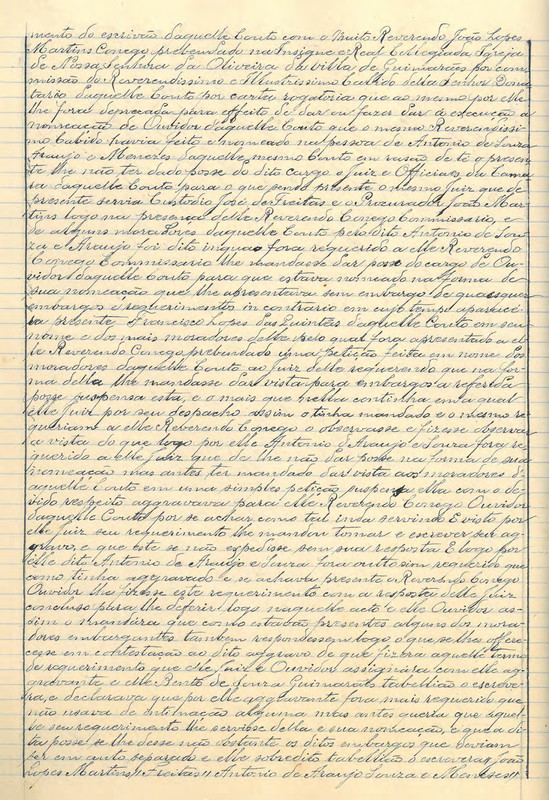 mento do escrivão daquelle Couto com o Muito Reverendo João Lopes
Martins Conego prebendado na Insigne e Real Collegiada Igreja
de Nossa Senhora da Oliveira da villa de Guimarães por com
missão do Reverendissimo e Illustrissimo Cabido della Senhor Dona
tario daquelle Couto por carta rogatoria que ao mesmo por elle
lhe fora deprecada para effeito de dar ou fazer dar á execução a
nomeação de Ouvidor daquelle Couto que o mesmo Reverendissi
mo Cabido havia feito e nomeado na pessoa de Antonio de Souza
Araujo e Menezes daquelle mesmo Couto em rasão de té o presen
te lhe não ter dado posse do dito cargo o Juiz e Officiaes da Cama
ra daquelle Couto para o que sendo presente o mesmo Juiz que de
presente servia Custodio José de Freitas e o Procurador João Mar
tins logo na presença delle Reverendo Conego Commissario, e
de alguns moradores daquelle Couto pelo dito Antonio de Sou
za e Araujo foi dito fora requerido a elle Reverendo
Conego Commissario lhe mandasse dar posse do cargo de Ou
vidor daquelle Couto para que estava nomeado na forma de
sua nomeação que lhe apresentava sem embargo de quaesquer
embargos e requerimentos in contrario em cujo tempo aparece
ra presente Francisco Lopes das Quintãs daquelle Couto em seu
nome e dos mais moradores delle pelo qual fora apresentado a el
le Reverendo Conego prebendado uma petição feita em nome dos
moradores daquelle Couto ao Juiz delle requerendo que na for
ma della lhe mandasse dar vista para embargos a referida
posse suspensa esta, e o mais que nella continha em a qual
elle Juiz por seu despacho assim o tinha mandado e o mesmo re
queriam a elle Reverendo Conego o observasse e fizesse observar
a vista do que logo por elle Antonio de Araujo e Souza fora re
querido a elle Juiz que de lhe não dar posse na forma de sua
nomeação mas antes ter mandado dar vista aos moradores d'
aquelle Couto em uma simples petição, suspensa ella com o de
vido respeito aggravava para elle Reverendo Conego Ouvidor
daquelle Couto por se achar como tal inda servindo E visto por
elle Juiz seu requerimento lhe mandou tomar e escrever seu ag
gravo, e que este se não expedisse sem sua resposta E logo por
elle dito Antonio de Araujo e Souza fora outro sim requerido que
como tinha aggravado e se achava presente o Reverendo Conego
Ouvidor lhe fizesse este requerimento com a resposta delle Juiz
concluso para lhe deferir logo naquelle acto e elle Ouvidor as
sim o mandára que como estavão presentes alguns dos mora
dores embargantes tambem respondessem logo o que se lhes offere
cesse em contestação ao dito aggravo de que fizera aquelle termo
de requerimento que elle Juiz e Ouvidor assignára com elle ag
gravante e elle Bento de Souza Guimarães tabellião o escreve
ra, e declarava que por elle aggravante fora mais requerido que
não usava de intimação alguma mas antes queria que aquel
le seu requerimento lhe servisse della e sua nomeação, e que a di
ta posse se lhe desse não obstante os ditos embargos que deviam
ser em auto separado e elle sobredito tabellião o escreveu João
Lopes Martins // Freitas // Antonio de Araujo Souza e Menezes //